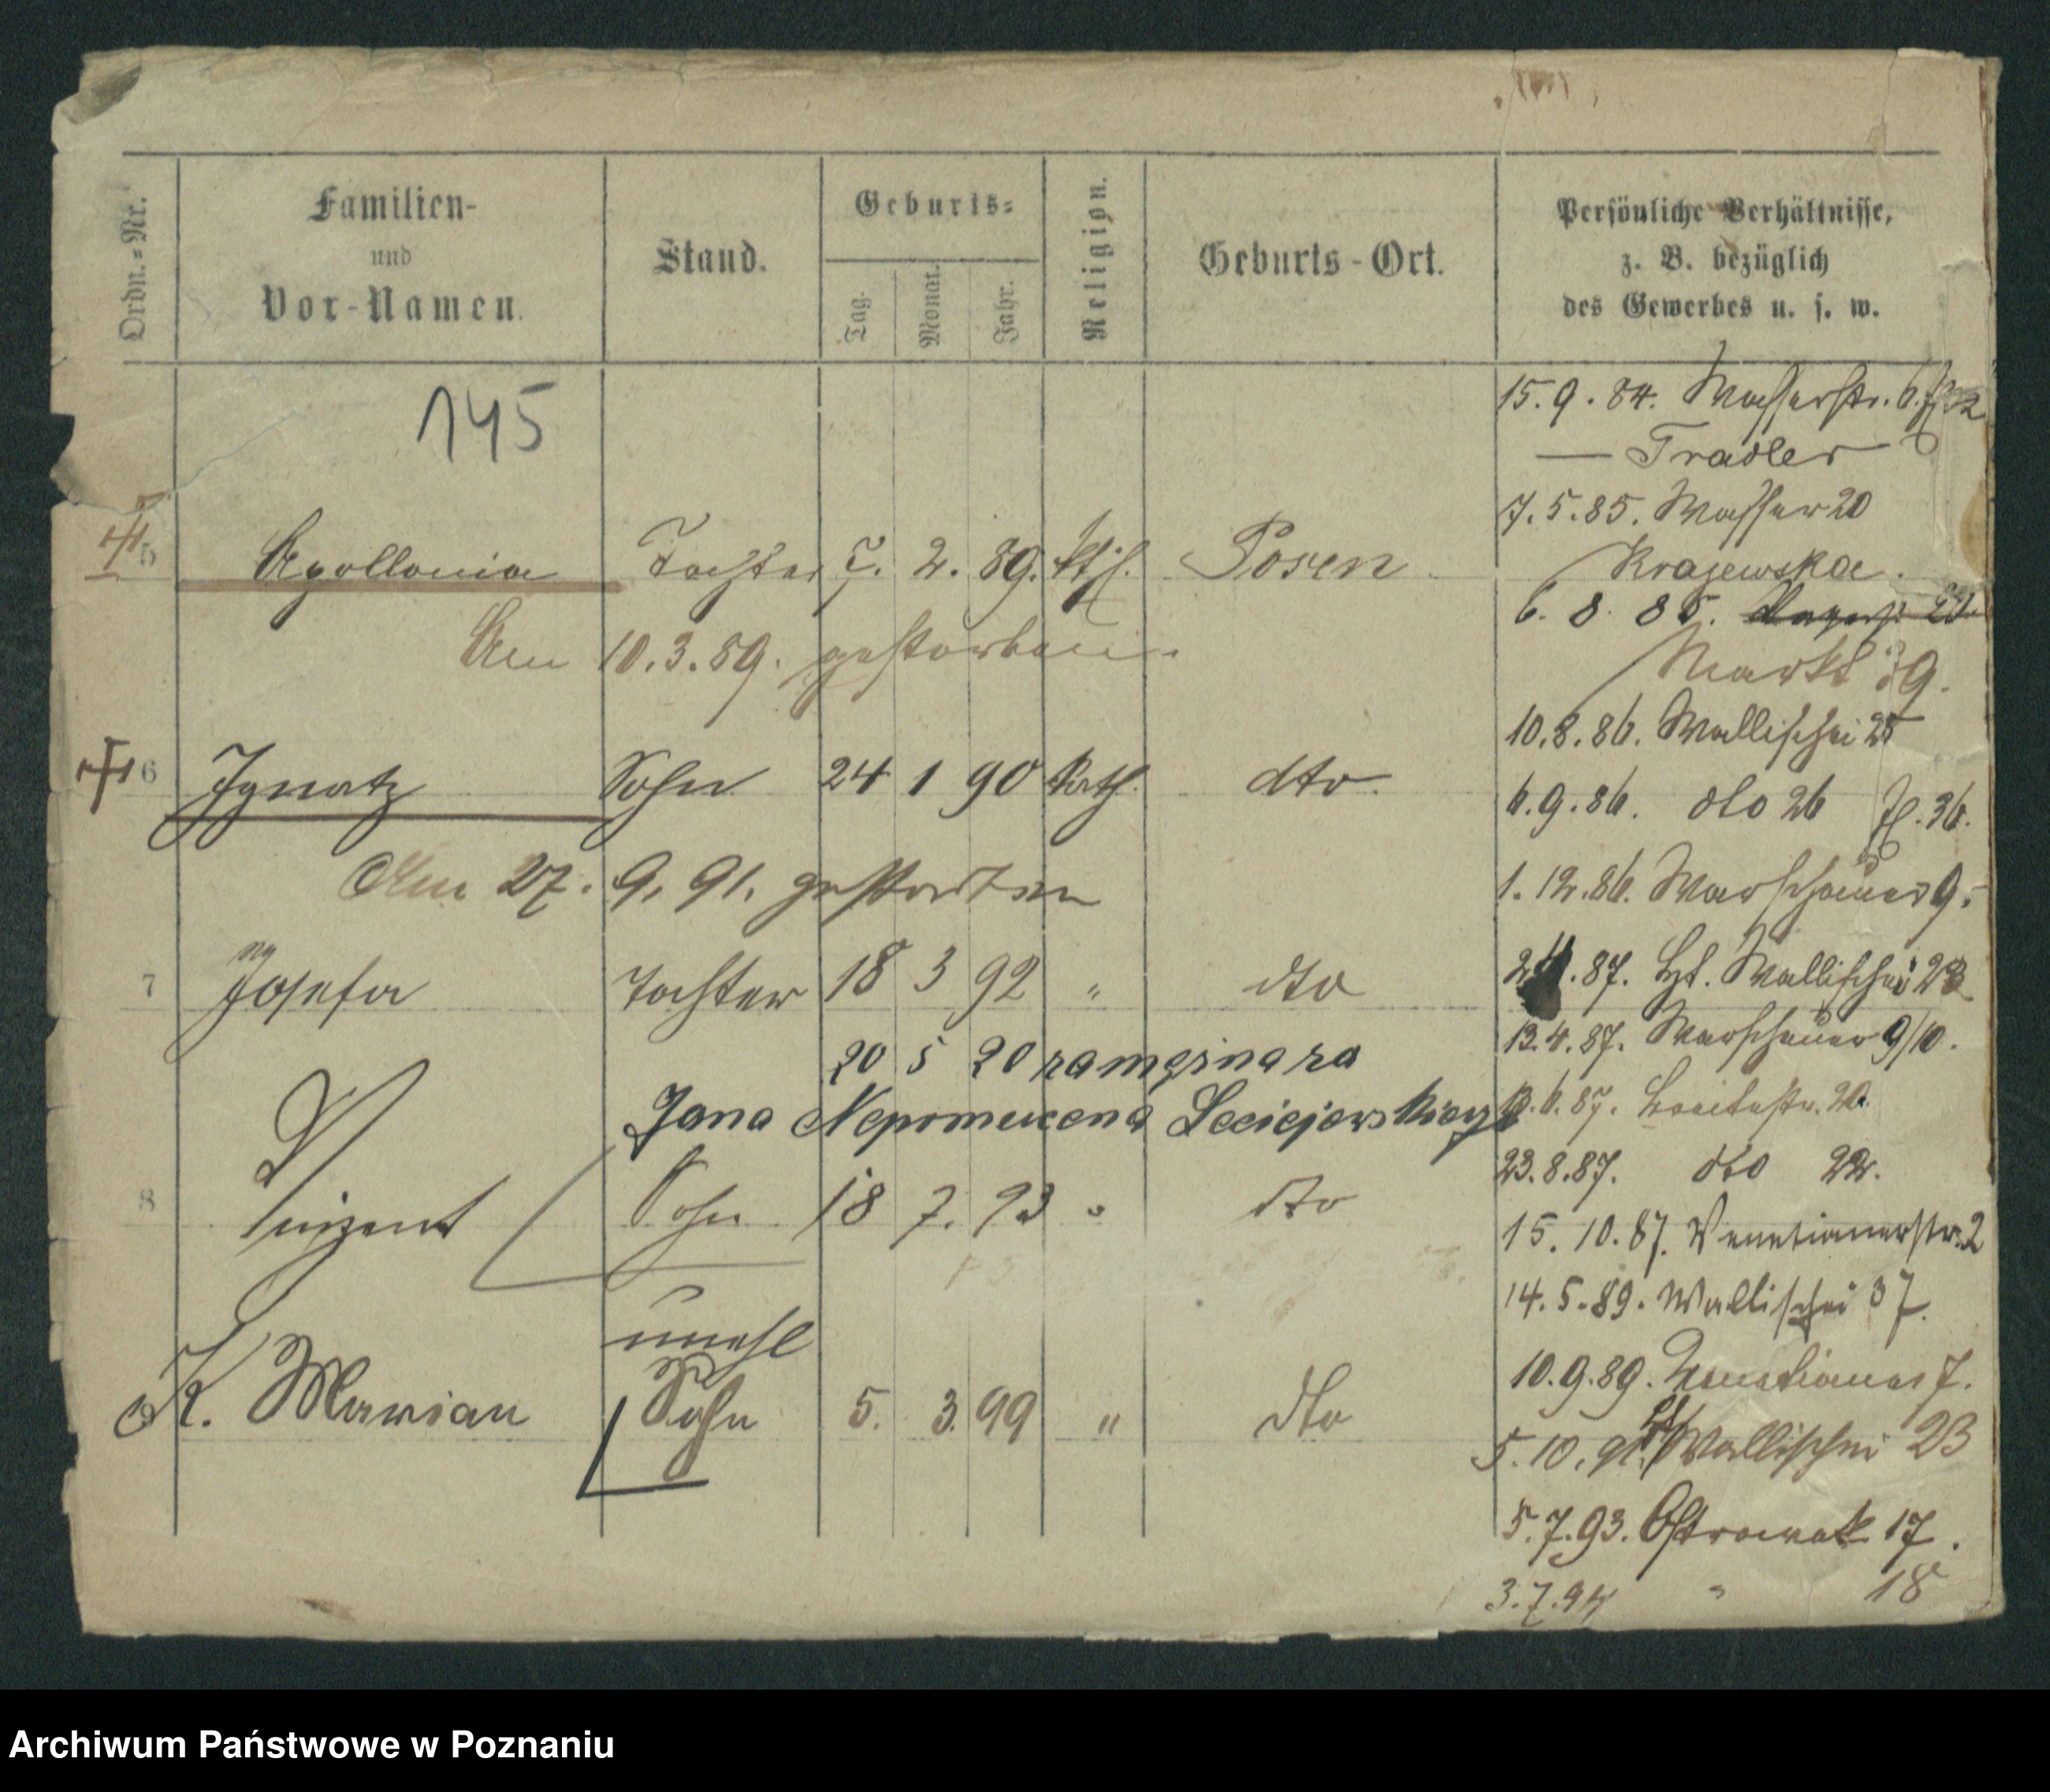 Ordn.=Nr.
Familien-
und
Vor-Namen.
Stand.
Geburts=
Tag.
Monat.
Jahr.
Religion.
Geburts-Ort.
Persönliche Verhältnisse,
z. B. bezüglich
des Gewerbes u. s. w.
145
5 Apollonia Tochter 7. 2. 89. kth. Posen
Am 10.3.89. gestorben.
6 Ignatz Sohn 24 1 90 kath. dto.
Am 27. 9. 91. gestorben
7 Josefa Tochter 18 3 92 " dto
20 5 20 ramęzna za
Jana Nepomucena Leciejewskiego
8 Vinzent Sohn 18 7. 93 " dto
unehl
9 K. Marian Sohn 5. 3. 99 " dto
15.9.84. Wasserstr. 6.
— Tradler
7.5.85. Wasser 20
Krajewska.
6. 8. 85.
Markt 39.
10.8.86. Wallischei 25
6.9.86. dto 26 H. 36.
1.12.86. Warschauer 9.
87. Ht. Wallischei 23
13.4.87. Warschauer 9/10.
6.87. Breitestr. 20.
23.8.87. dto 22.
15. 10. 87. Venetianerstr. 2
14. 5. 89. Wallischei 37.
10.9.89. Venetianer 7.
5.10.91. Wallischei 23
5.7.93. Ostrowek 17.
3.7.94 " 18
Archiwum Państwowe w Poznaniu